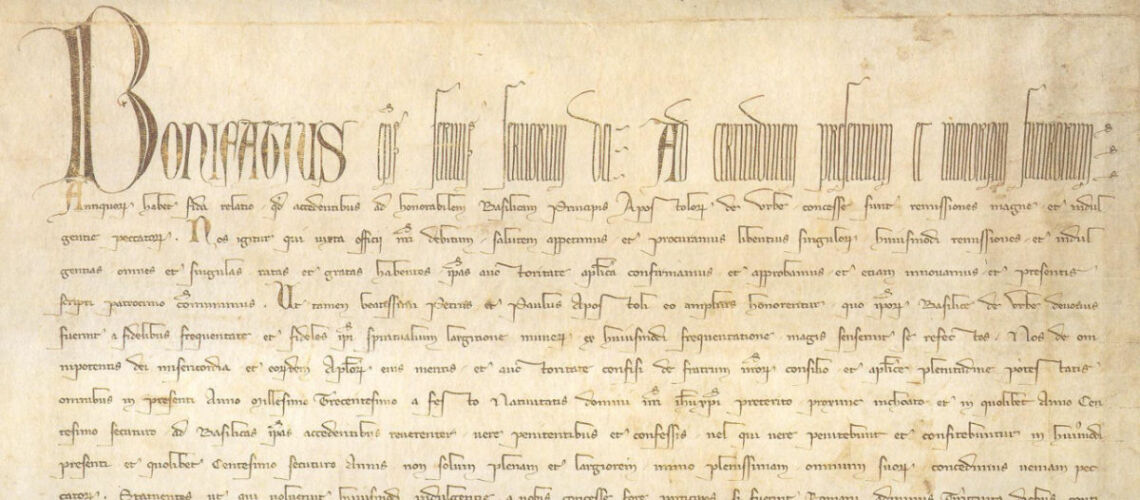 Bonifatius ep̄s seruus seruorum dei. Ad certitudinem presentium et memoriam futurorum.
Antiquorꝝ habet fida relatio qđ accedentibus ad honorabilem Basilicam Principis Apostolorꝝ de Urbe concesse sunt remissiones magne et indul
gentie peccatorꝝ. Nos igitur qui iuxta officii nr̄i debitum salutem appetimus et procuramus libentius singulorꝝ huiusmodi remissiones et indul
gentias omnes et singulas ratas et gratas habentes ip̄as auctoritate aplica confirmamus et approbamus et etiam innouamus et presentis
scripti patrocinio com̄unimus. Ut tamen beatissimi Petrus et Paulus Apostoli eo amplius honorentur quo ip̄orꝝ Basilice de Urbe deuotius
fuerint a fidelibus frequentate et fideles ip̄i spiritualium largitione munerꝝ ex huiusmodi frequentatione magis senserint se refectos. Nos de om
nipotentis dei misericordia et eorꝝdem Aplorꝝ eius meritis et auctoritate confisi de fratrum nr̄orꝝ consilio et aplice plenitudine potestatis
omnibus in presenti Anno Millesimo Trecentesimo a festo Natiuitatis domini nr̄i ih̄u xp̄i preterito proxime inchoato et in quolibet Anno Cen
tesimo secuturo ad Basilicas ip̄as accedentibus reuerenter uere penitentibus et confessis uel qui uere penitebunt et confitebuntur in huīmodi
presenti et quolibet Centesimo secuturo Annis non solum plenam et largiorem immo plenissimam omnium suorꝝ concedimus ueniam pec
catorꝝ. Statuentes ut qui uoluerint huiusmodi indulgentie a nobis concesse fore participes si fuerint Romani